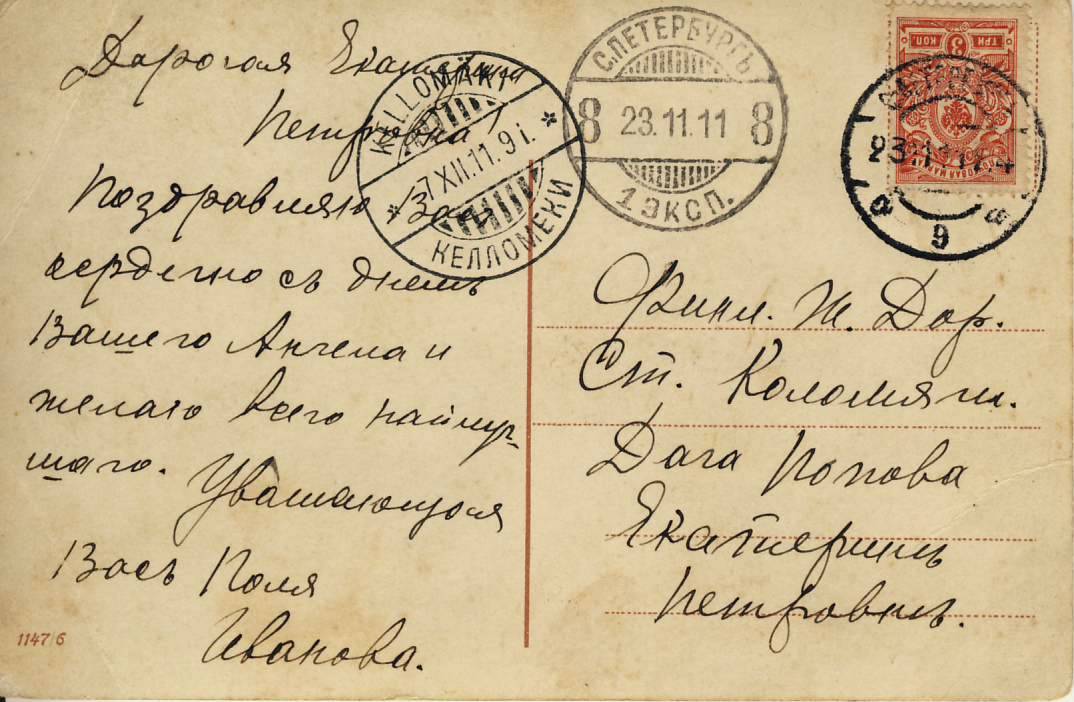 Дорогая Екатерина
Петровна!
Поздравляю Васъ
сердечно съ днемъ
Вашего Ангела и
желаю всего найлуч-
шаго. Уважающая
Васъ Поля
Иванова.
1147/6
KELLOMÄKI
7.XII.11. 9 i.
КЕЛЛОМЕКИ
С.ПЕТЕРБУРГЪ
8 23.11.11 8
1 ЭКСП.
ТРИ 3 КОП.
9
Финл. Ж. Дор.
Ст. Коломяги.
Дача Попова
Екатеринѣ
Петровнѣ.